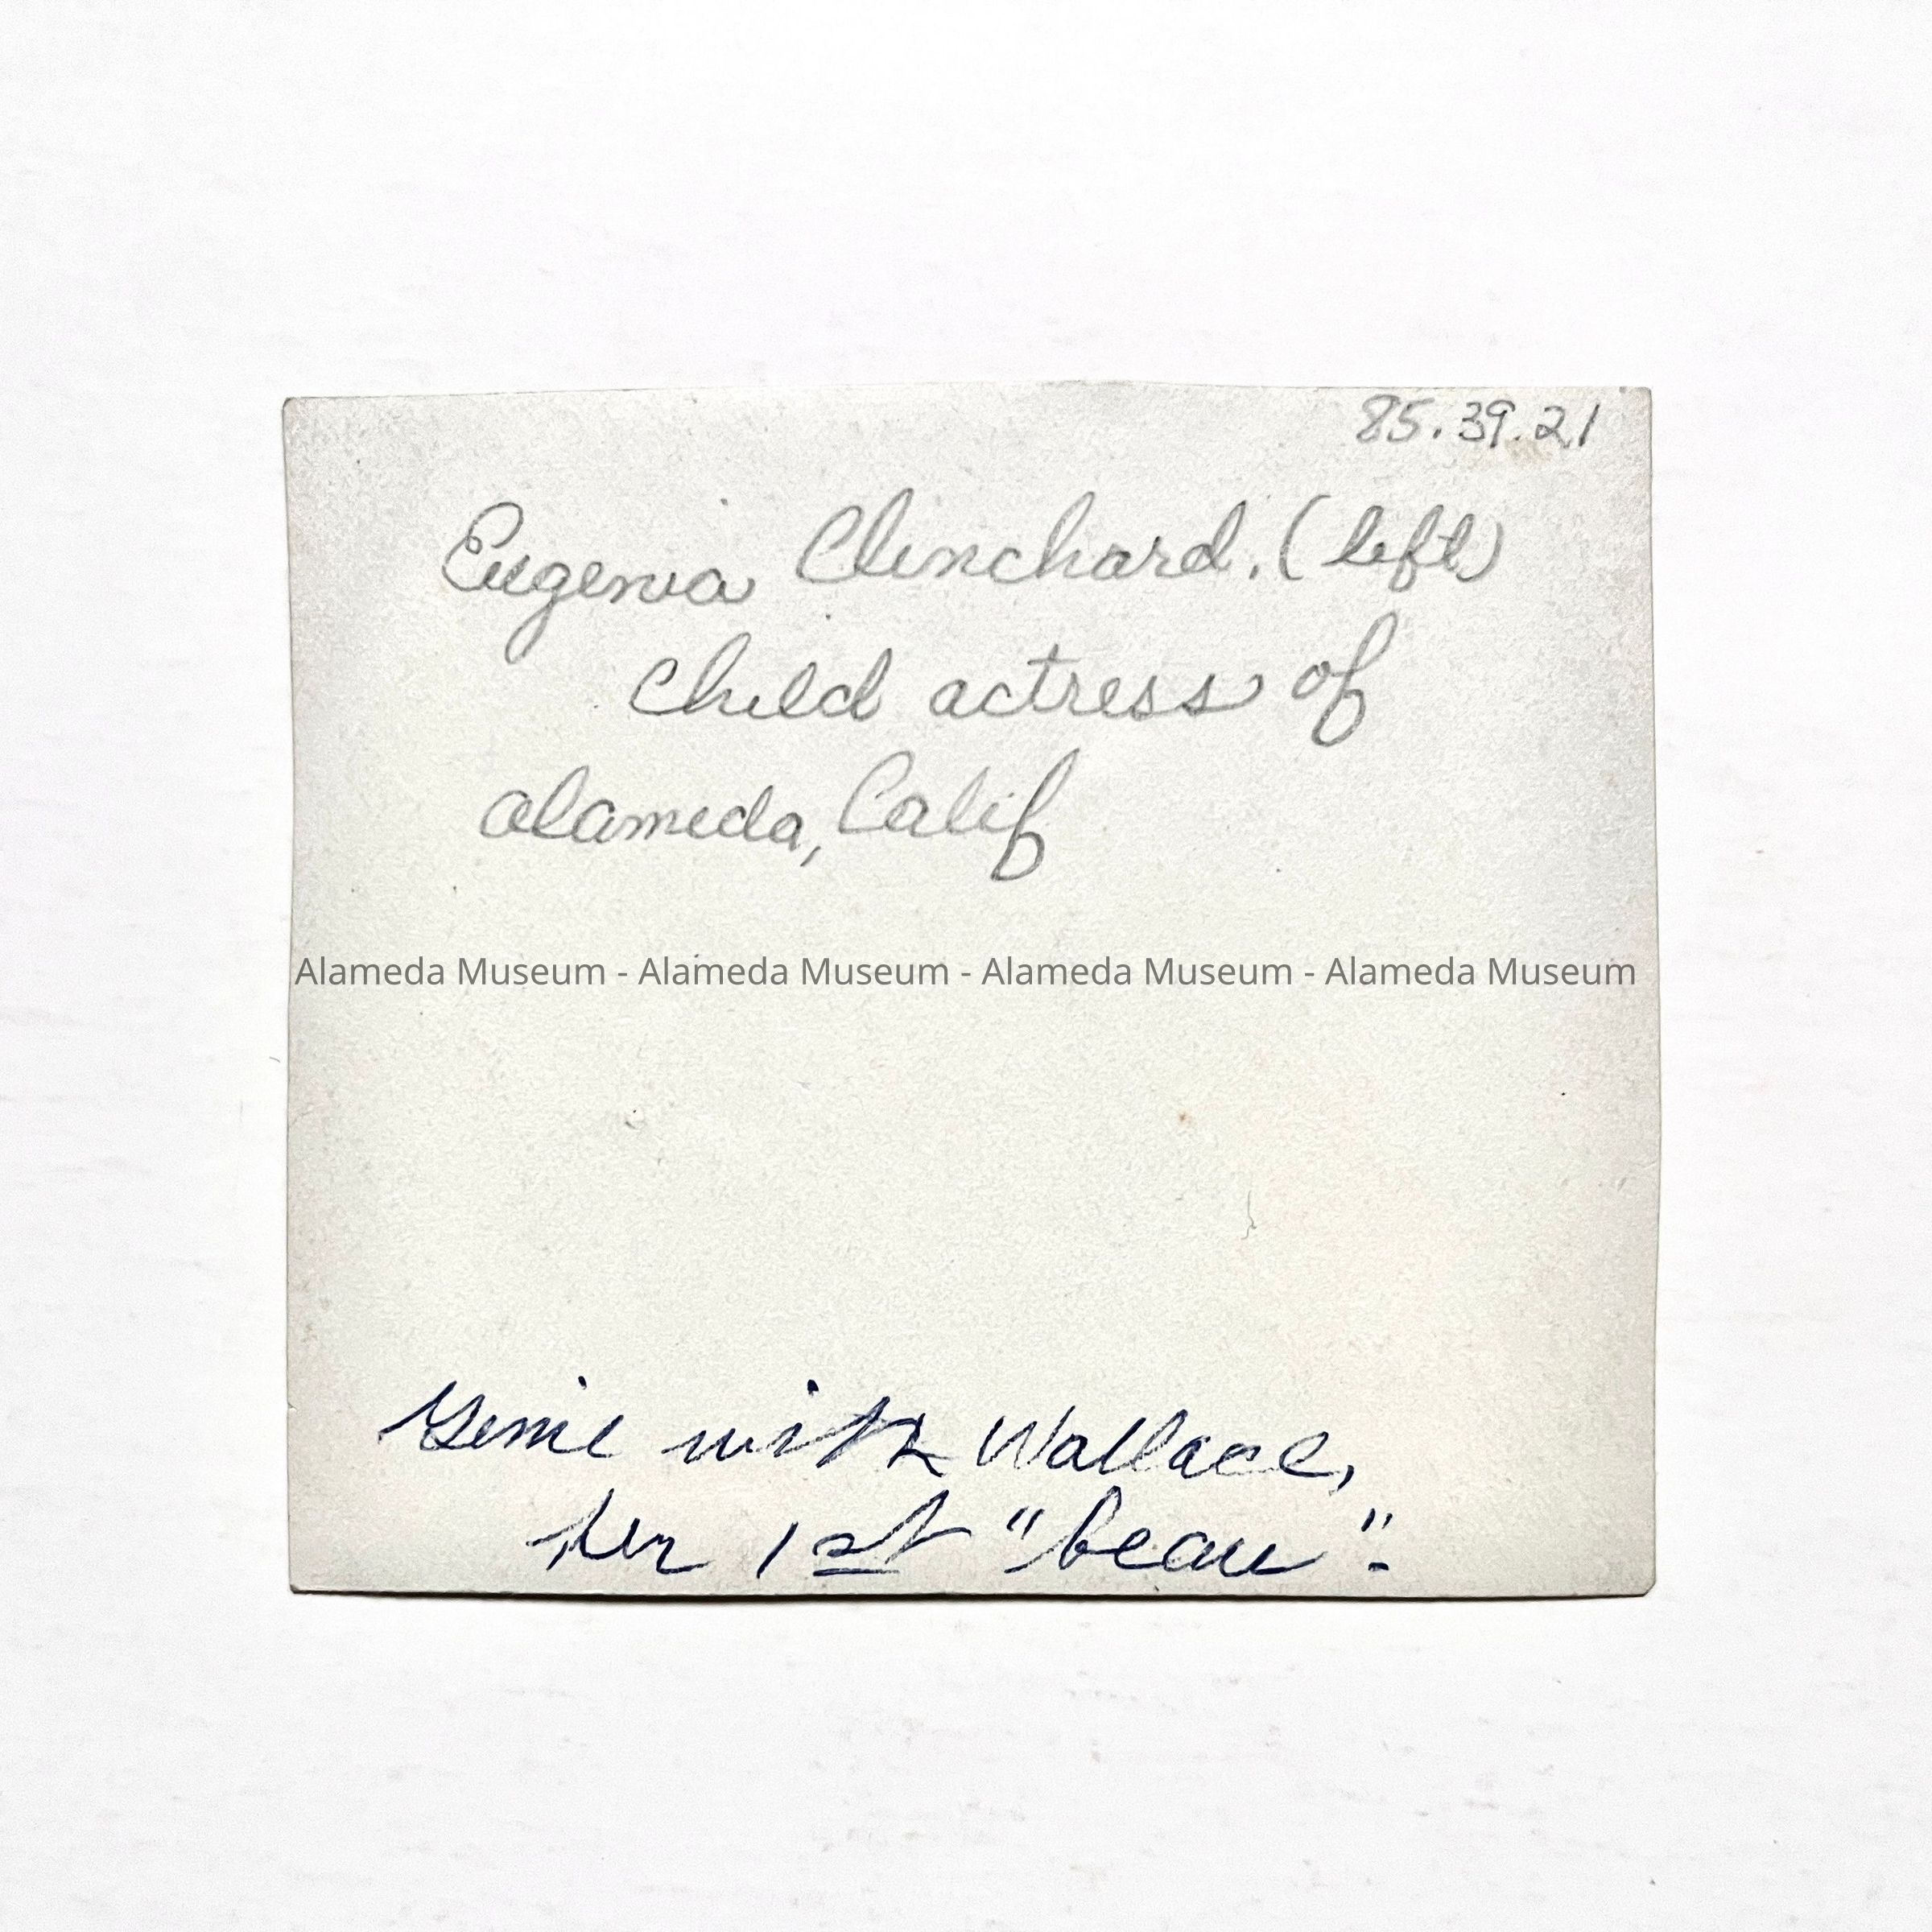 85.39.21
Eugenia Clinchard. (left)
Child actress of
Alameda, Calif
Alameda Museum - Alameda Museum - Alameda Museum - Alameda Museum
Genie with Wallace,
her 1st "beau".